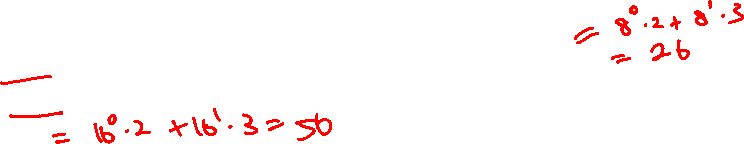 = 8⁰·2 + 8¹·3
= 26
= 16⁰·2 + 16¹·3 = 50